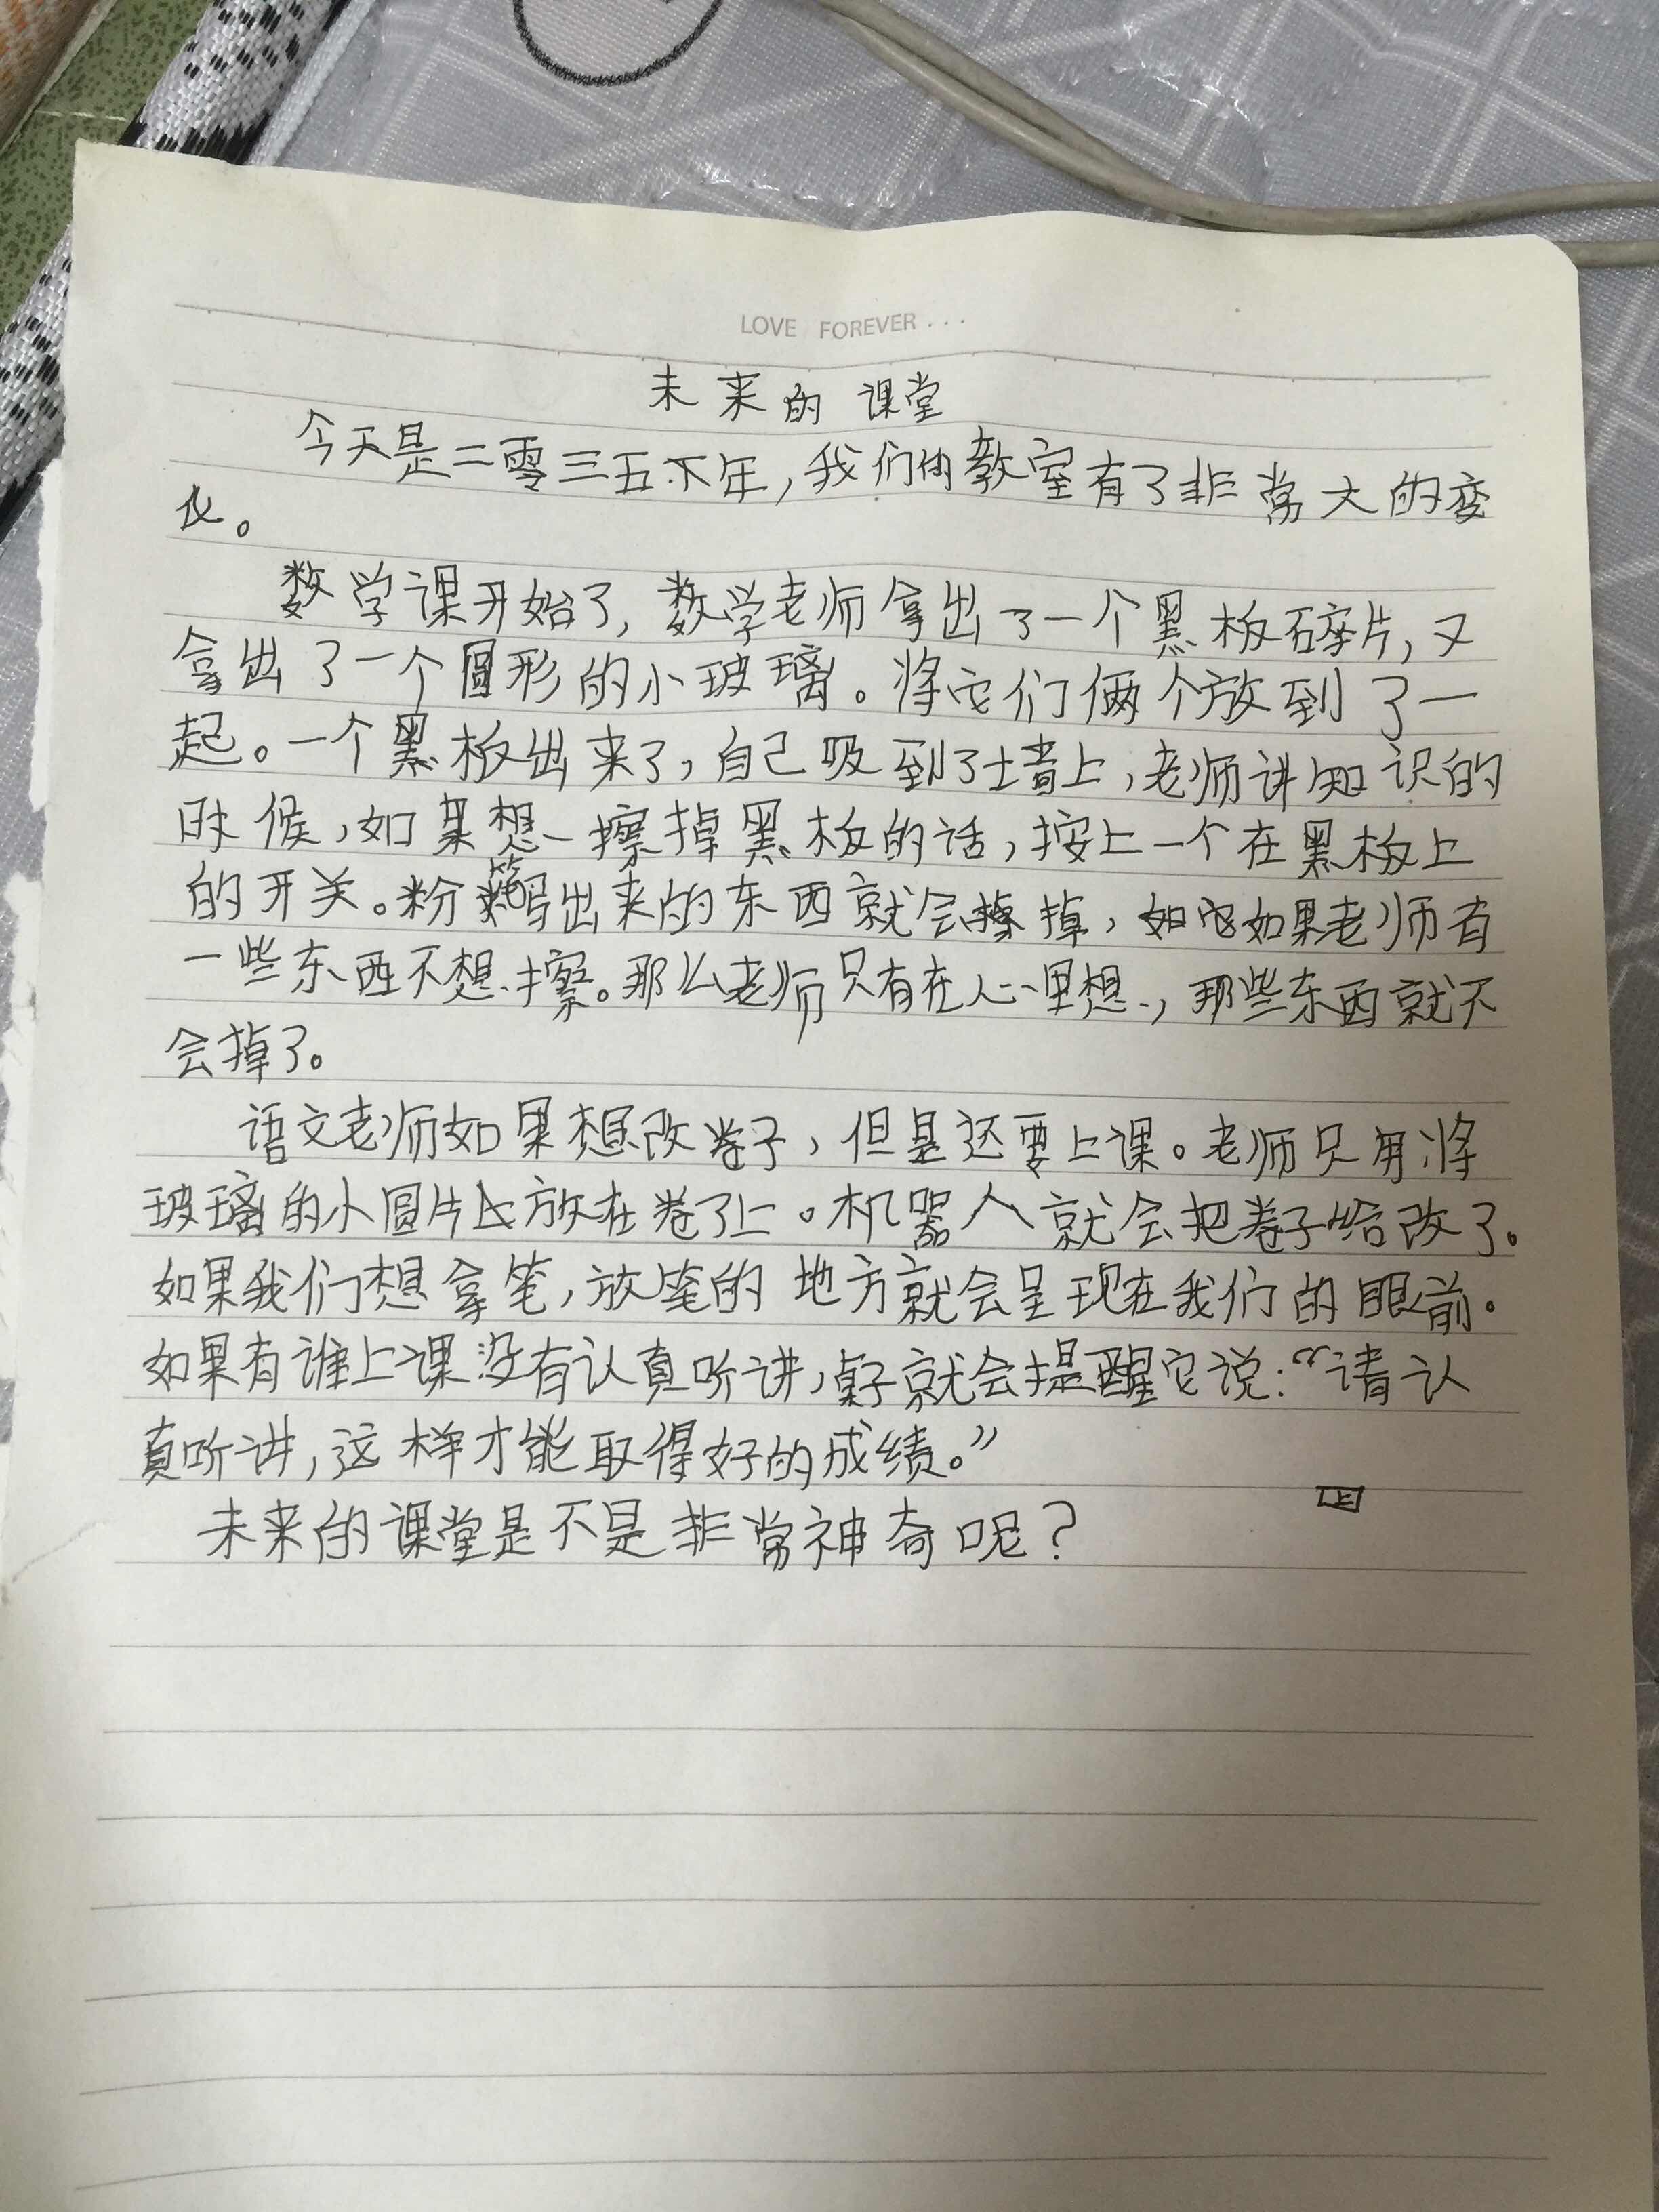 LOVE FOREVER...
未来的课堂
今天是二零三五下年，我们的教室有了非常大的变
化。
数学课开始了，数学老师拿出了一个黑板碎片，又
拿出了一个圆形的小玻璃。将它们俩个放到了一
起。一个黑板出来了，自己吸到了墙上，老师讲知识的
时候，如果想一擦掉黑板的话，按上一个在黑板上
的开关。粉笔写出来的东西就会擦掉，如它如果老师有
一些东西不想擦。那么老师只有在心里想，那些东西就不
会掉了。
语文老师如果想改卷子，但是还要上课。老师只用将
玻璃的小圆片放在卷子上。机器人就会把卷子给改了。
如果我们想拿笔，放笔的地方就会呈现在我们的眼前。
如果有谁上课没有认真听讲，桌子就会提醒它说：“请认
真听讲，这样才能取得好的成绩。”
未来的课堂是不是非常神奇呢？